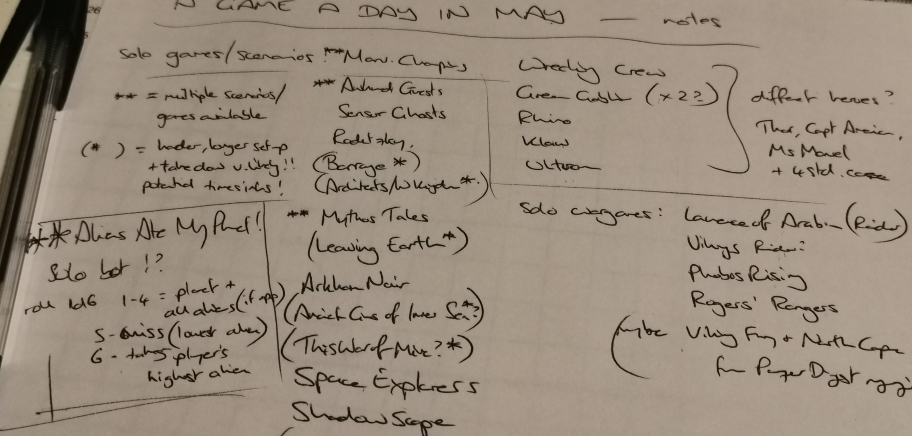 A GAME A DAY IN MAY — notes
solo games/scenarios:
** = multiple scenarios/
games available
(* ) = harder, larger set-up
+ takedown v. likely!!
potential timesinks!
** Marv. Champs
** Ashes Guests
Sensor Ghosts
(Barrage *)
(Architects/W Kingdom *)
** Mythos Tales
(Leaving Earth *)
Arkham Noir
(Ancient Civs of Inner Sea? *)
(This War of Mine? *)
Space Explorers
ShadowScape
Wrecking Crew
Green Goblin (x2?)
Rhino
Klaw
Ultron
different heroes?
Thor, Capt
Ms Marvel
+ 4 std.
** Aliens Ate My
Solo bot !?
roll 1d6 1-4 = planet +
all aliens (if
5 - miss (lowest alien)
6 - takes player's
highest alien
solo wargames: Lawrence of Arabia (Raider)
Vikings Raider?
Phobos Rising
Rogers' Rangers
(maybe Viking Fury + North Cape
from Panzer Digest